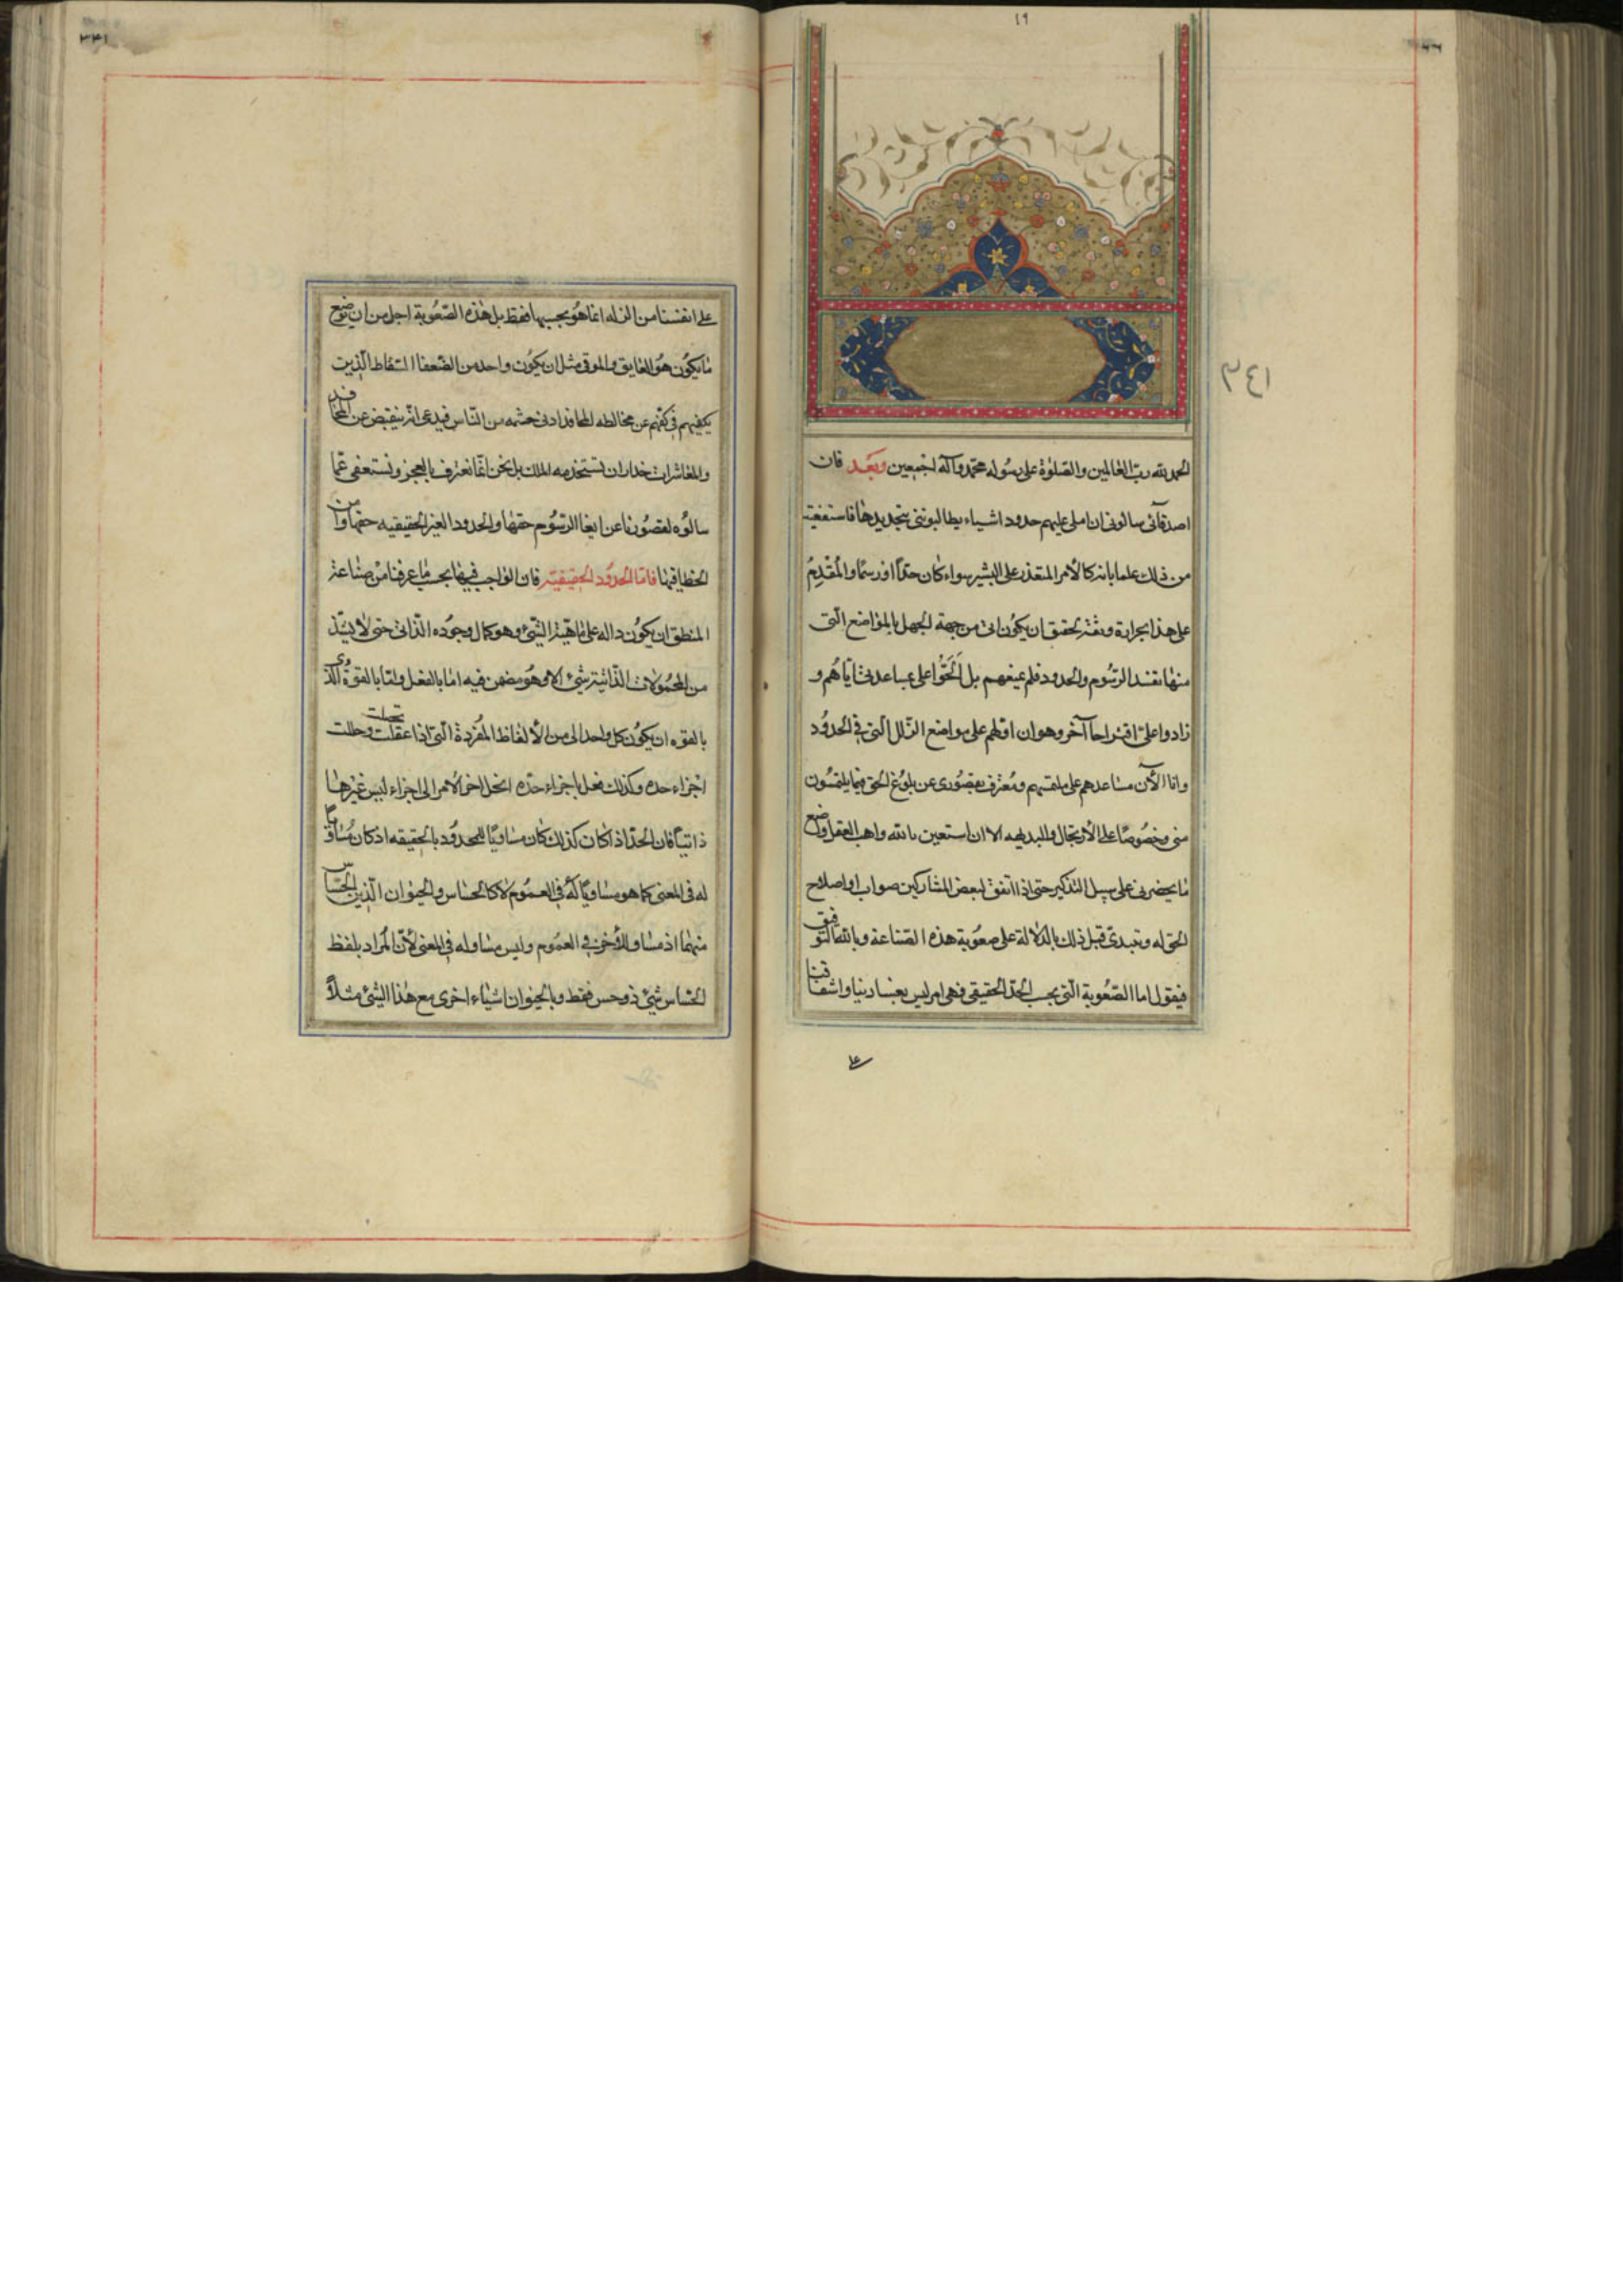 ١٩
٣٤١
الحمد لله رب العالمين والصلوة على رسوله محمد وآله اجمعين وبعد فان
اصدقائى سالونى ان املى عليهم حدود اشياء يطالبوننى بتحديدها فاستعفيت
من ذلك علما بانه كالأمر المتعذر على البشر سواء كان حدّا او رسمًا والمُقدِمُ
على هذا بجراءة وثقة لحقيق ان يكون اتى من جهة الجهل بالمواضع الّتى
منها تفسد الرسُوم والحدود فلم يمنعهم بل اَلَحّوُا على بمساعدتى اياهم و
زادوا علىّ اقتراحا آخر وهو ان ادلهم على مواضع الزلل الّتى فى الحدُود
وانا الآن مساعدهم على ملتمسهم ومُعترف بقصُورى عن بلوُغ الحق فيما يلتمسُون
منى وخصُوصًا على الارتجال والبديهه الا ان استعين بالله واهب العقل واضع
ما يحضرنى على سبيل التذكير حتى اذا اتفق لبعض المشاركين صواب او اصلاح
الحق له ونبتدى قبل ذلك بالدلالة على صعُوبة هذه الصّناعة وبالله التوفيق
فيقول اما الصّعُوبة الّتى بحسب الحدّ الحقيقى فهى امر ليس بعنسا دينيا واشفاقنا
على
٣٤١
على انفسنا من الزله انما هُو بحسبها فقط بل هذه الصّعُوبة اجل من ان توضع
ما يكُون هُو العايق والموقى مثل ان يكُون واحد من الضّعفا السّقاط الّذين
يكفيهم فى كفّهم عن مخالطه المحافد ادنى حشمه من النّاس فيدعى انّه ينقبض عن المحافد
والمعاشرات حذار ان تستخدمه الملك بل نحن انما نعترف بالعجز ونستعفى عمّا
سالوُه لقصُورنا عن ايفا الرسُوم حقها والحدود الغير الحقيقيه حقها وامن
الخطا فيها فاما الحدُود الحقيقية فان الواجب فيها بحسب ما عرفنا من صناعة
المنطق ان يكُون داله على ماهيّة الشّئ وهو كمال وجُوده الذّاتى حتى لا يشذ
من المحمُولات الذّاتية شئ الا وهُو مضمن فيه امّا بالفعل وامّا بالقوّة والّذى
بالقوه ان يكُون كل واحد الى من الألفاظ المُفردة الّتى اذا عقلت تحصلت وحللت
اجزاء حده وكذلك فعل باجزاء حدّه انحل اخر الأمر الى اجزاء ليس غيرها
ذاتيّا فان الحدّ اذا كان كذلك كان مساويًا للمحدُود بالحقيقه اذ كان مُساويًا
له فى المعنى كما هو مساويًا له فى العمُوم لا كالحساس والحيوان الّذين الحسّاس
منهما اذ مساو للأخر فى العمُوم وليس مساو له فى المعنى لأنّ المُراد بلفظ
الحسّاس شئ ذو حس فقط وبالحيوان اشياء اخرى مع هذا الشّئ مثلاً